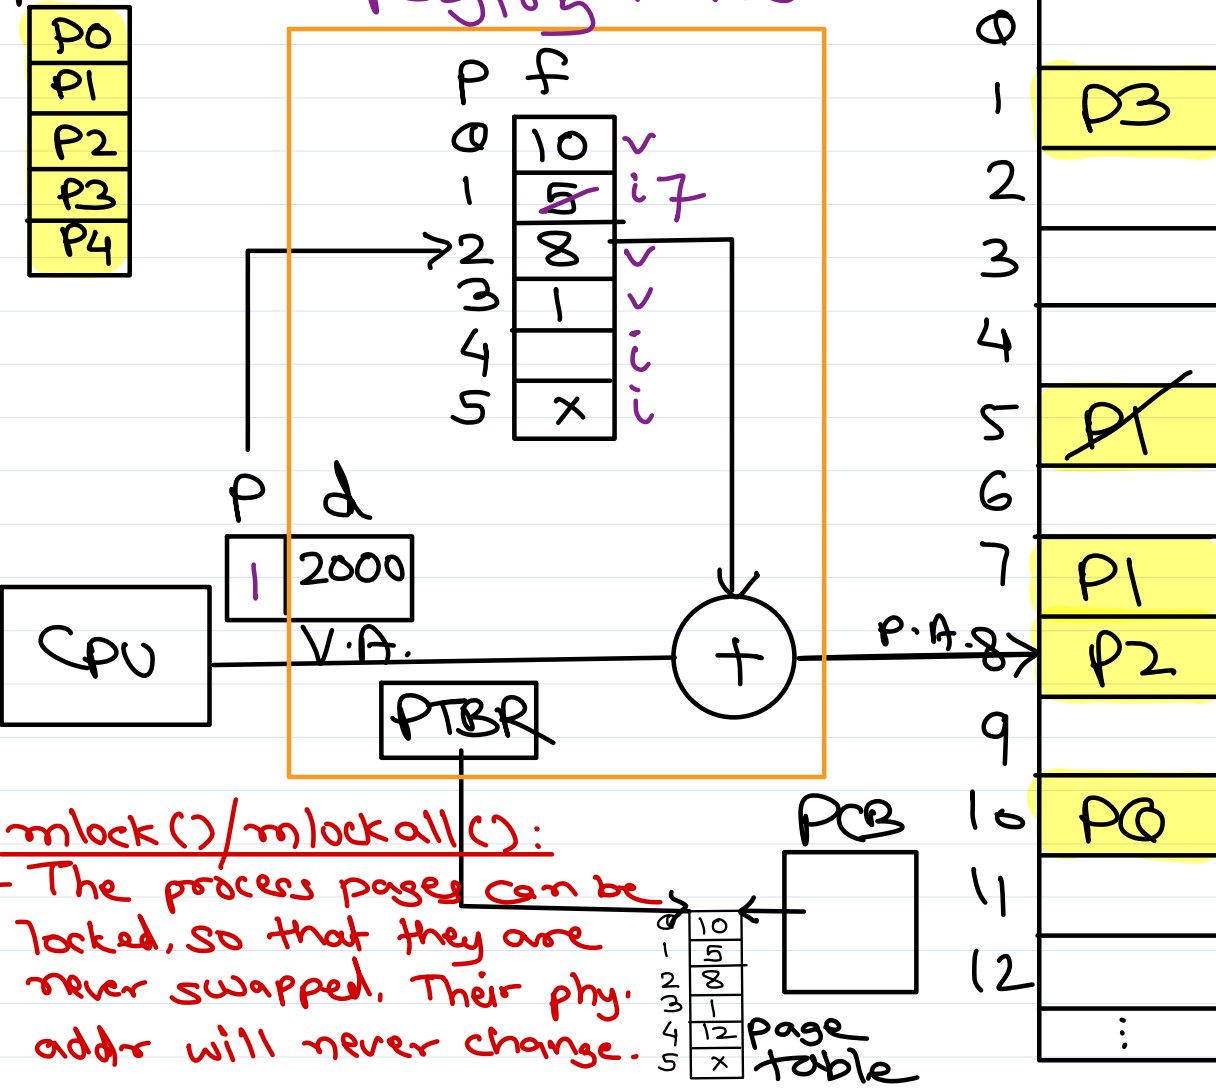 P0
P1
P2
P3
P4
p f
0 10 v
1 5 i 7
2 8 v
3 1 v
4 i
5 x i
p d
1 2000
CPU
V.A.
+
P.A.
PTBR
0
1 P3
2
3
4
5 P1
6
7 P1
8 P2
9
10 P0
11
12
⋮
mlock()/mlockall():
- The process pages can be
locked, so that they are
never swapped. Their phy.
addr will never change.
PCB
0 10
1 5
2 8
3 1
4 12
5 x
page
table